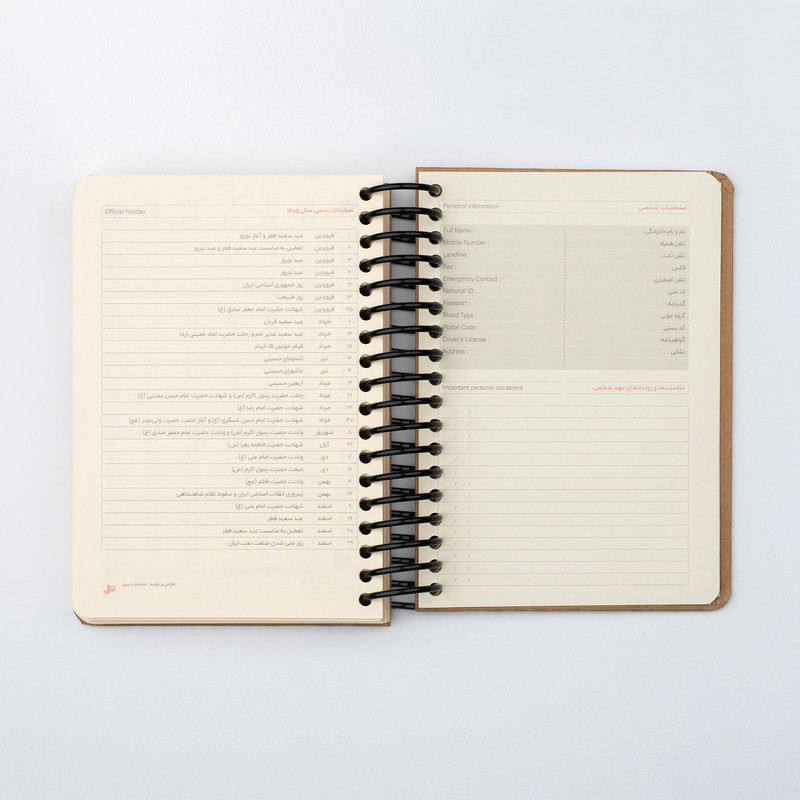 مشخصات شخصی Personal information
نام و نام خانوادگی: Full Name :
تلفن همراه: Mobile Number :
تلفن ثابت: Landline :
فکس: Fax :
تلفن اضطراری: Emergency Contact :
کد ملی: National ID :
گذرنامه: Passport :
گروه خونی: Blood Type :
کد پستی: Postal Code :
گواهینامه: Driver's License :
نشانی: Address :
مناسبت‌ها و رویدادهای مهم شخصی Important personal occasions
تعطیلات رسمی سال ۱۴۰۵ Official holiday
۱ فروردین عید سعید فطر و آغاز نوروز
۲ فروردین تعطیل به مناسبت عید سعید فطر و عید نوروز
۳ فروردین عید نوروز
۴ فروردین عید نوروز
۱۲ فروردین روز جمهوری اسلامی ایران
۱۳ فروردین روز طبیعت
۲۵ فروردین شهادت حضرت امام جعفر صادق (ع)
۶ خرداد عید سعید قربان
۱۴ خرداد عید سعید غدیر خم و رحلت حضرت امام خمینی (ره)
۱۵ خرداد قیام خونین ۱۵ خرداد
۳ تیر تاسوعای حسینی
۴ تیر عاشورای حسینی
۱۳ مرداد اربعین حسینی
۲۱ مرداد رحلت حضرت رسول اکرم (ص) و شهادت حضرت امام حسن مجتبی (ع)
۲۲ مرداد شهادت حضرت امام رضا (ع)
۳۰ مرداد شهادت حضرت امام حسن عسکری (ع) و آغاز امامت حضرت ولی‌عصر (عج)
۸ شهریور ولادت حضرت رسول اکرم (ص) و ولادت حضرت امام جعفر صادق (ع)
آبان شهادت حضرت فاطمه زهرا (س)
۲ دی ولادت حضرت امام علی (ع)
۱۶ دی مبعث حضرت رسول اکرم (ص)
۴ بهمن ولادت حضرت قائم (عج)
۲۲ بهمن پیروزی انقلاب اسلامی ایران و سقوط نظام شاهنشاهی
۹ اسفند شهادت حضرت امام علی (ع)
۱۹ اسفند عید سعید فطر
۲۰ اسفند تعطیل به مناسبت عید سعید فطر
۲۹ اسفند روز ملی شدن صنعت نفت ایران
طراحی و تولید: انتشارات